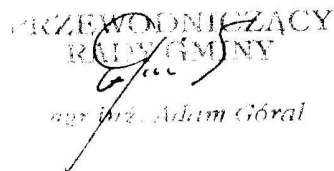 PRZEWODNICZĄCY
RADY GMINY
mgr inż. Adam Góral